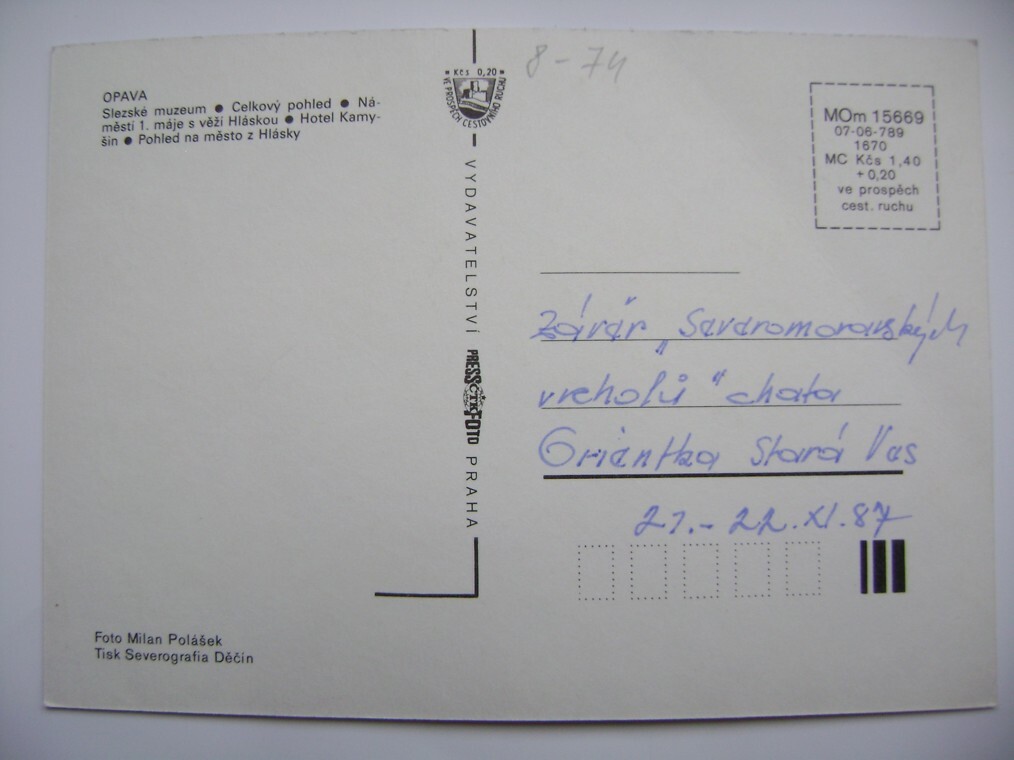 OPAVA
Slezské muzeum ● Celkový pohled ● Ná-
městí 1. máje s věží Hláskou ● Hotel Kamy-
šin ● Pohled na město z Hlásky
Kčs 0,20
VE PROSPĚCH CESTOVNÍHO RUCHU
VYDAVATELSTVÍ PRESSFOTO ČTK PRAHA
8-74
MOm 15669
07-06-789
1670
MC Kčs 1,40
+ 0,20
ve prospěch
cest. ruchu
Závěr „Severomoravských
vrcholů" chata
Orientka Stará Ves
21.-22.XI.87
Foto Milan Polášek
Tisk Severografia Děčín